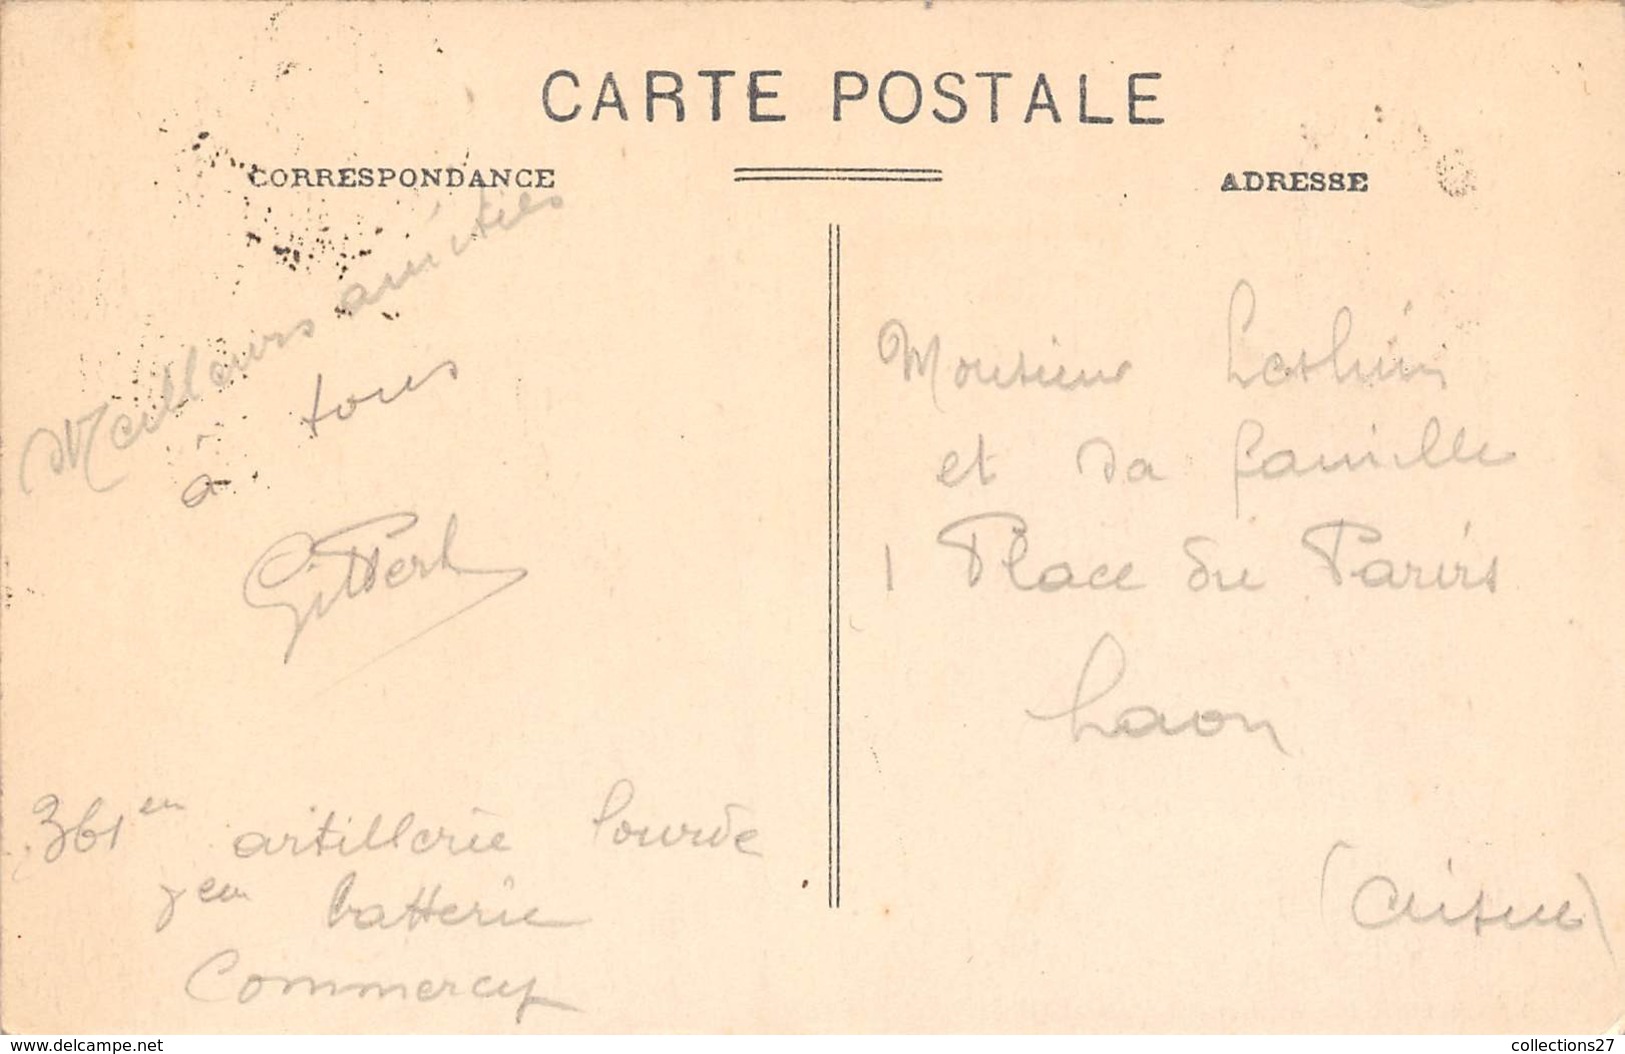 CARTE POSTALE
CORRESPONDANCE
ADRESSE
Meilleurs amitiés
à tous
Monsieur
et sa famille
1 Place du Parvis
Laon
(Aisne)
361em artillerie lourde
7em batterie
Commercy
www.delcampe.net
collections27